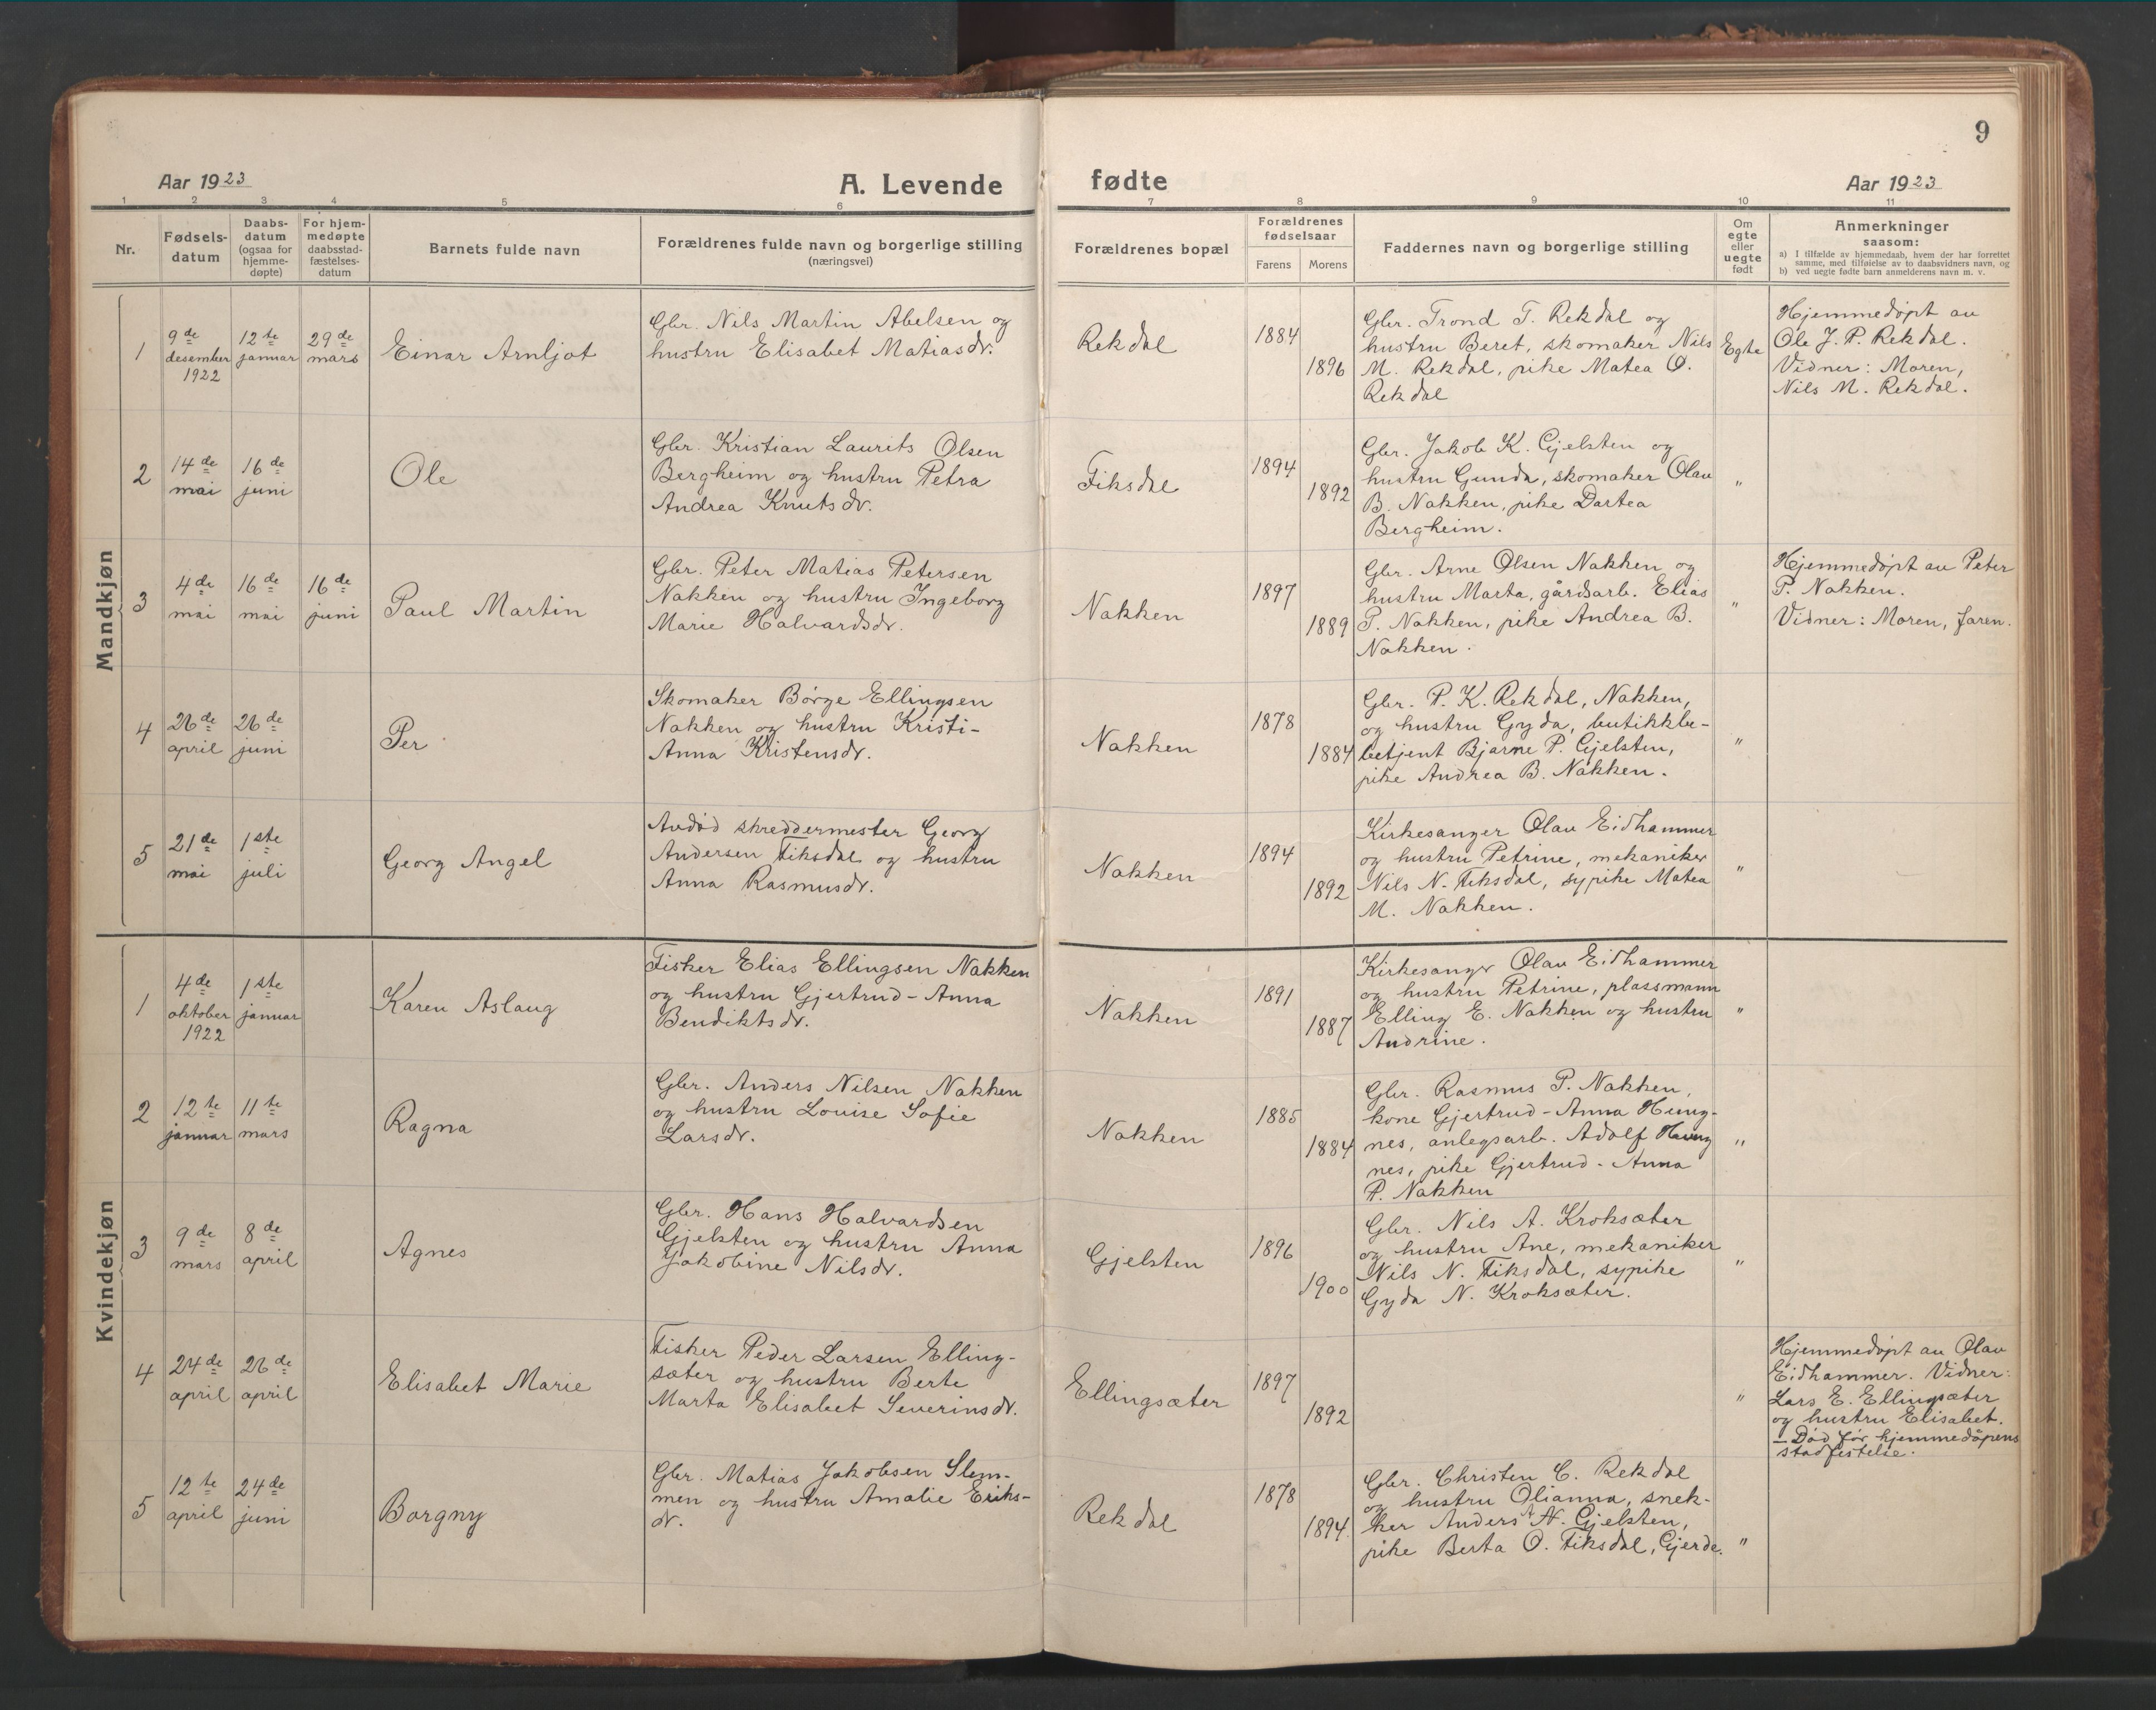 9
Aar 1923
A. Levende
fødte
Aar 1923
1 2 3 4 5 6 7 8 9 10 11
Nr.
Fødsels-
datum
Daabs-
datum
(ogsaa for
hjemme-
døpte)
For hjem-
medøpte
daabsstad-
fæstelses-
datum
Barnets fulde navn
Forældrenes fulde navn og borgerlige stilling
(næringsvei)
Forældrenes bopæl
Forældrenes
fødselsaar
Farens
Morens
Faddernes navn og borgerlige stilling
Om
egte
eller
uegte
født
Anmerkninger
saasom:
a) I tilfælde av hjemmedaab, hvem der har forrettet
samme, med tilføielse av to daabsvidners navn, og
b) ved uegte fødte barn anmelderens navn m. v.
Mandkjøn
1
9de
desember
1922
12te
januar
29de
mars
Einar Arnljot
Gbr. Nils Martin Abelsen og
hustru Elisabet Matiasdr.
Rekdal
1884
1896
Gbr. Trond T. Rekdal og
hustru Beret, skomaker Nils
M. Rekdal, pike Matea O.
Rekdal
Egte
Hjemmedøpt av
Ole J. P. Rekdal.
Vidner: Moren,
Nils M. Rekdal.
2
14de
mai
16de
juni
Ole
Gbr. Kristian Laurits Olsen
Bergheim og hustru Petra
Andrea Knutsdr.
Fiksdal
1894
1892
Gbr. Jakob K. Gjelsten og
hustru Gunda, skomaker Olav
B. Nakken, pike Dortea
Bergheim.
"
3
4de
mai
16de
mai
16de
juni
Paul Martin
Gbr. Peter Matias Petersen
Nakken og hustru Ingeborg
Marie Halvardsdr.
Nakken
1897
1889
Gbr. Arne Olsen Nakken og
hustru Marta, gårdsarb. Elias
P. Nakken, pike Andrea B.
Nakken.
"
Hjemmedøpt av Peter
P. Nakken.
Vidner: Moren, faren.
4
26de
april
26de
juni
Per
Skomaker Børge Ellingsen
Nakken og hustru Kristi-
Anna Kristensdr.
Nakken
1878
1884
Gbr. P. K. Rekdal, Nakken,
og hustru Gyda, butikkbe-
betjent Bjarne P. Gjelsten,
pike Andrea B. Nakken.
"
5
21de
mai
1ste
juli
Georg Angel
Avdød skreddermester Georg
Andersen Fiksdal og hustru
Anna Rasmusdr.
Nakken
1894
1892
Kirkesanger Olav Eidhammer
og hustru Petrine, mekaniker
Nils N. Fiksdal, sypike Matea
M. Nakken.
"
Kvindekjøn
1
4de
oktober
1922
1ste
januar
Karen Aslaug
Fisker Elias Ellingsen Nakken
og hustru Gjertrud-Anna
Bendiktsdr.
Nakken
1891
1887
Kirkesanger Olav Eidhammer
og hustru Petrine, plassmann
Elling E. Nakken og hustru
Andrine.
"
2
12te
januar
11te
mars
Ragna
Gbr. Anders Nilsen Nakken
og hustru Louise Sofie
Larsdr.
Nakken
1885
1884
Gbr. Rasmus P. Nakken,
kone Gjertrud-Anna Hung-
nes, anlegsarb. Adolf Hung
nes, pike Gjertrud-Anna
P. Nakken
"
3
9de
mars
8de
april
Agnes
Gbr. Hans Halvardsen
Gjelsten og hustru Anna
Jakobine Nilsdr.
Gjelsten
1896
1900
Gbr. Nils A. Kroksæter
og hustru Ane, mekaniker
Nils N. Fiksdal, sypike
Gyda N. Kroksæter.
"
4
24de
april
26de
april
Elisabet Marie
Fisker Peder Larsen Elling-
sæter og hustru Berte
Marta Elisabet Severinsdr.
Ellingsæter
1897
1892
"
Hjemmedøpt av Olav
Eidhammer. Vidner:
Lars E. Ellingsæter
og hustru Elisabet.
— Død før hjemmedåpens
stadfestelse.
5
12te
april
24de
juni
Borgny
Gbr. Matias Jakobsen Slem-
men og hustru Amalie Eriks-
dr.
Rekdal
1878
1894.
Gbr. Christen C. Rekdal
og hustru Olianna, snek-
ker Anders N. Gjelsten,
pike Berta O. Fiksdal, Gjerde.
"